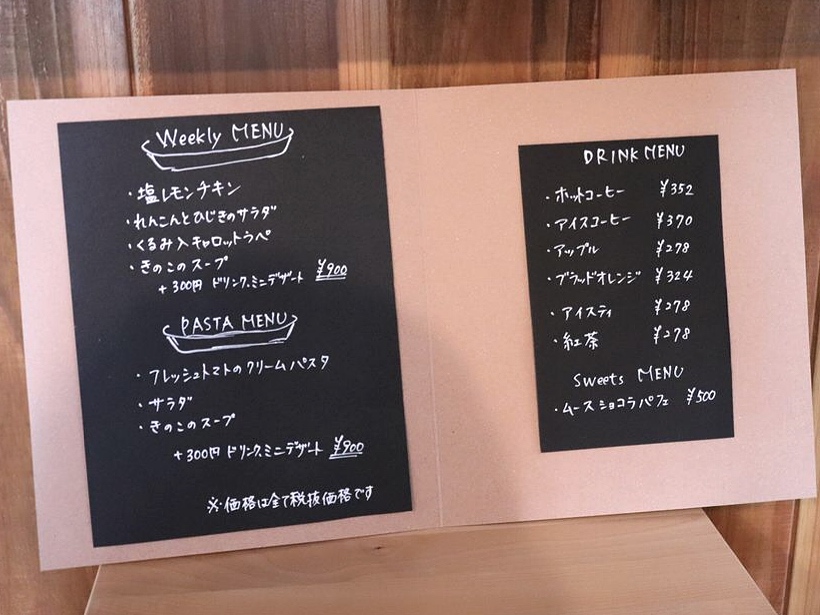 Weekly MENU
・塩レモンチキン
・れんこんとひじきのサラダ
・くるみ入キャロットラペ
・きのこのスープ
+300円 ドリンク、ミニデザート ¥900
PASTA MENU
・フレッシュトマトのクリームパスタ
・サラダ
・きのこのスープ
+300円 ドリンク、ミニデザート ¥900
※価格は全て税抜価格です
DRINK MENU
・ホットコーヒー ¥352
・アイスコーヒー ¥370
・アップル ¥278
・ブラッドオレンジ ¥324
・アイスティ ¥278
・紅茶 ¥278
Sweets MENU
・ムースショコラパフェ ¥500